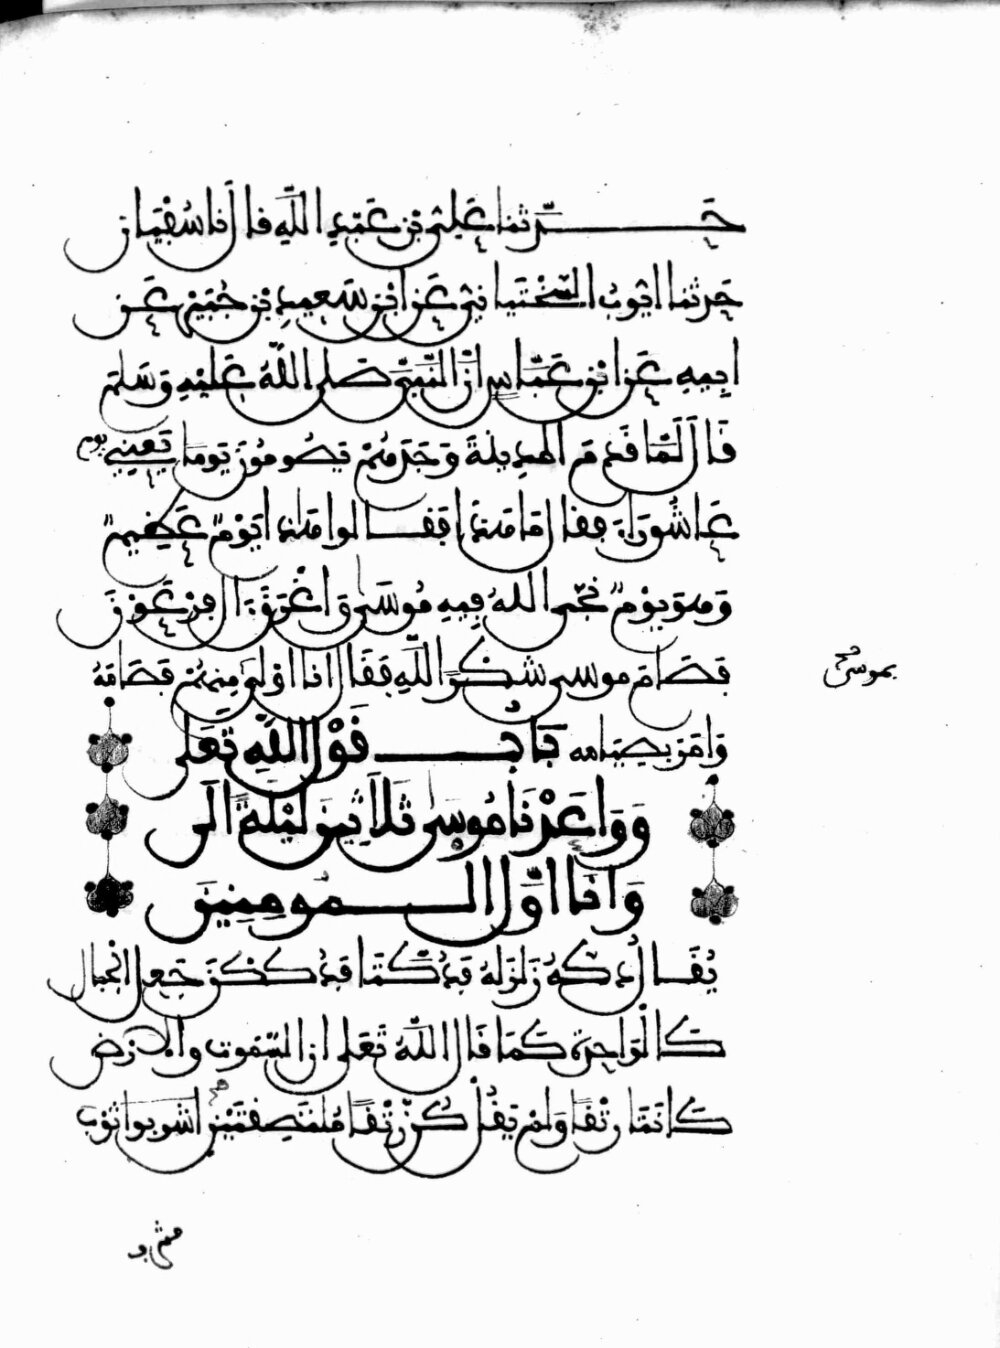 حَدَّثنا عَلِيّ بْن عَبْدِ اللَّهِ قال نا سُفْيَان
حدثنا ايّوبُ السَّخْتِيانِيّ عَن ابْن سَعِيدِ بْن جُبَيْرٍ عَن
ابِيهِ عَن ابْنِ عَبَّاسٍ انَّ النَّبِيّ صَلى اللَّهُ عَلَيْهِ وَسَلم
قَال لَمَّا قَدِمَ المدِينةَ وَجَدَهُمْ يَصُومُونَ يَوما يَعْنِي يوم
عَاشُورَاءَ فقال مَا هَذَا فقالوا هَذَا يَوْمٌ عَظِيمٌ
وَهو يوْمٌ نَجَّى اللهُ فِيهِ مُوسَى وَاغْرَقَ ءالَ فِرْعَوْنَ
فَصَامَ موسى شكْرًا للَّهِ فَقَال انا اولَى مِنْهُمْ فَصَامَهُ
بموسى
وَامَرَ بِصِيَامه بَابُ قَوْلِ اللَّهِ تَعَلى
وَوَاعَدْنَا مُوسَى ثَلَاثِينَ لَيْلَةً الَى
وَأَنَا اوَّلُ المُومِنِينَ
يُقَال دكهُ زَلْزَلهُ فَدُكَّتَا فَدُكِكْنَ جَعلَ الجِبال
كَالْوَاحِدَةِ كَمَا قَال اللَّهُ تَعَلى ان السَّمَوت وَالارْض
كَانَتَا رَتْقًا وَلمْ يَقُلْ كُنَّ رَتْقًا مُلْتَصِقتَيْنِ اشْرِبوا ثَوْب
مشرب